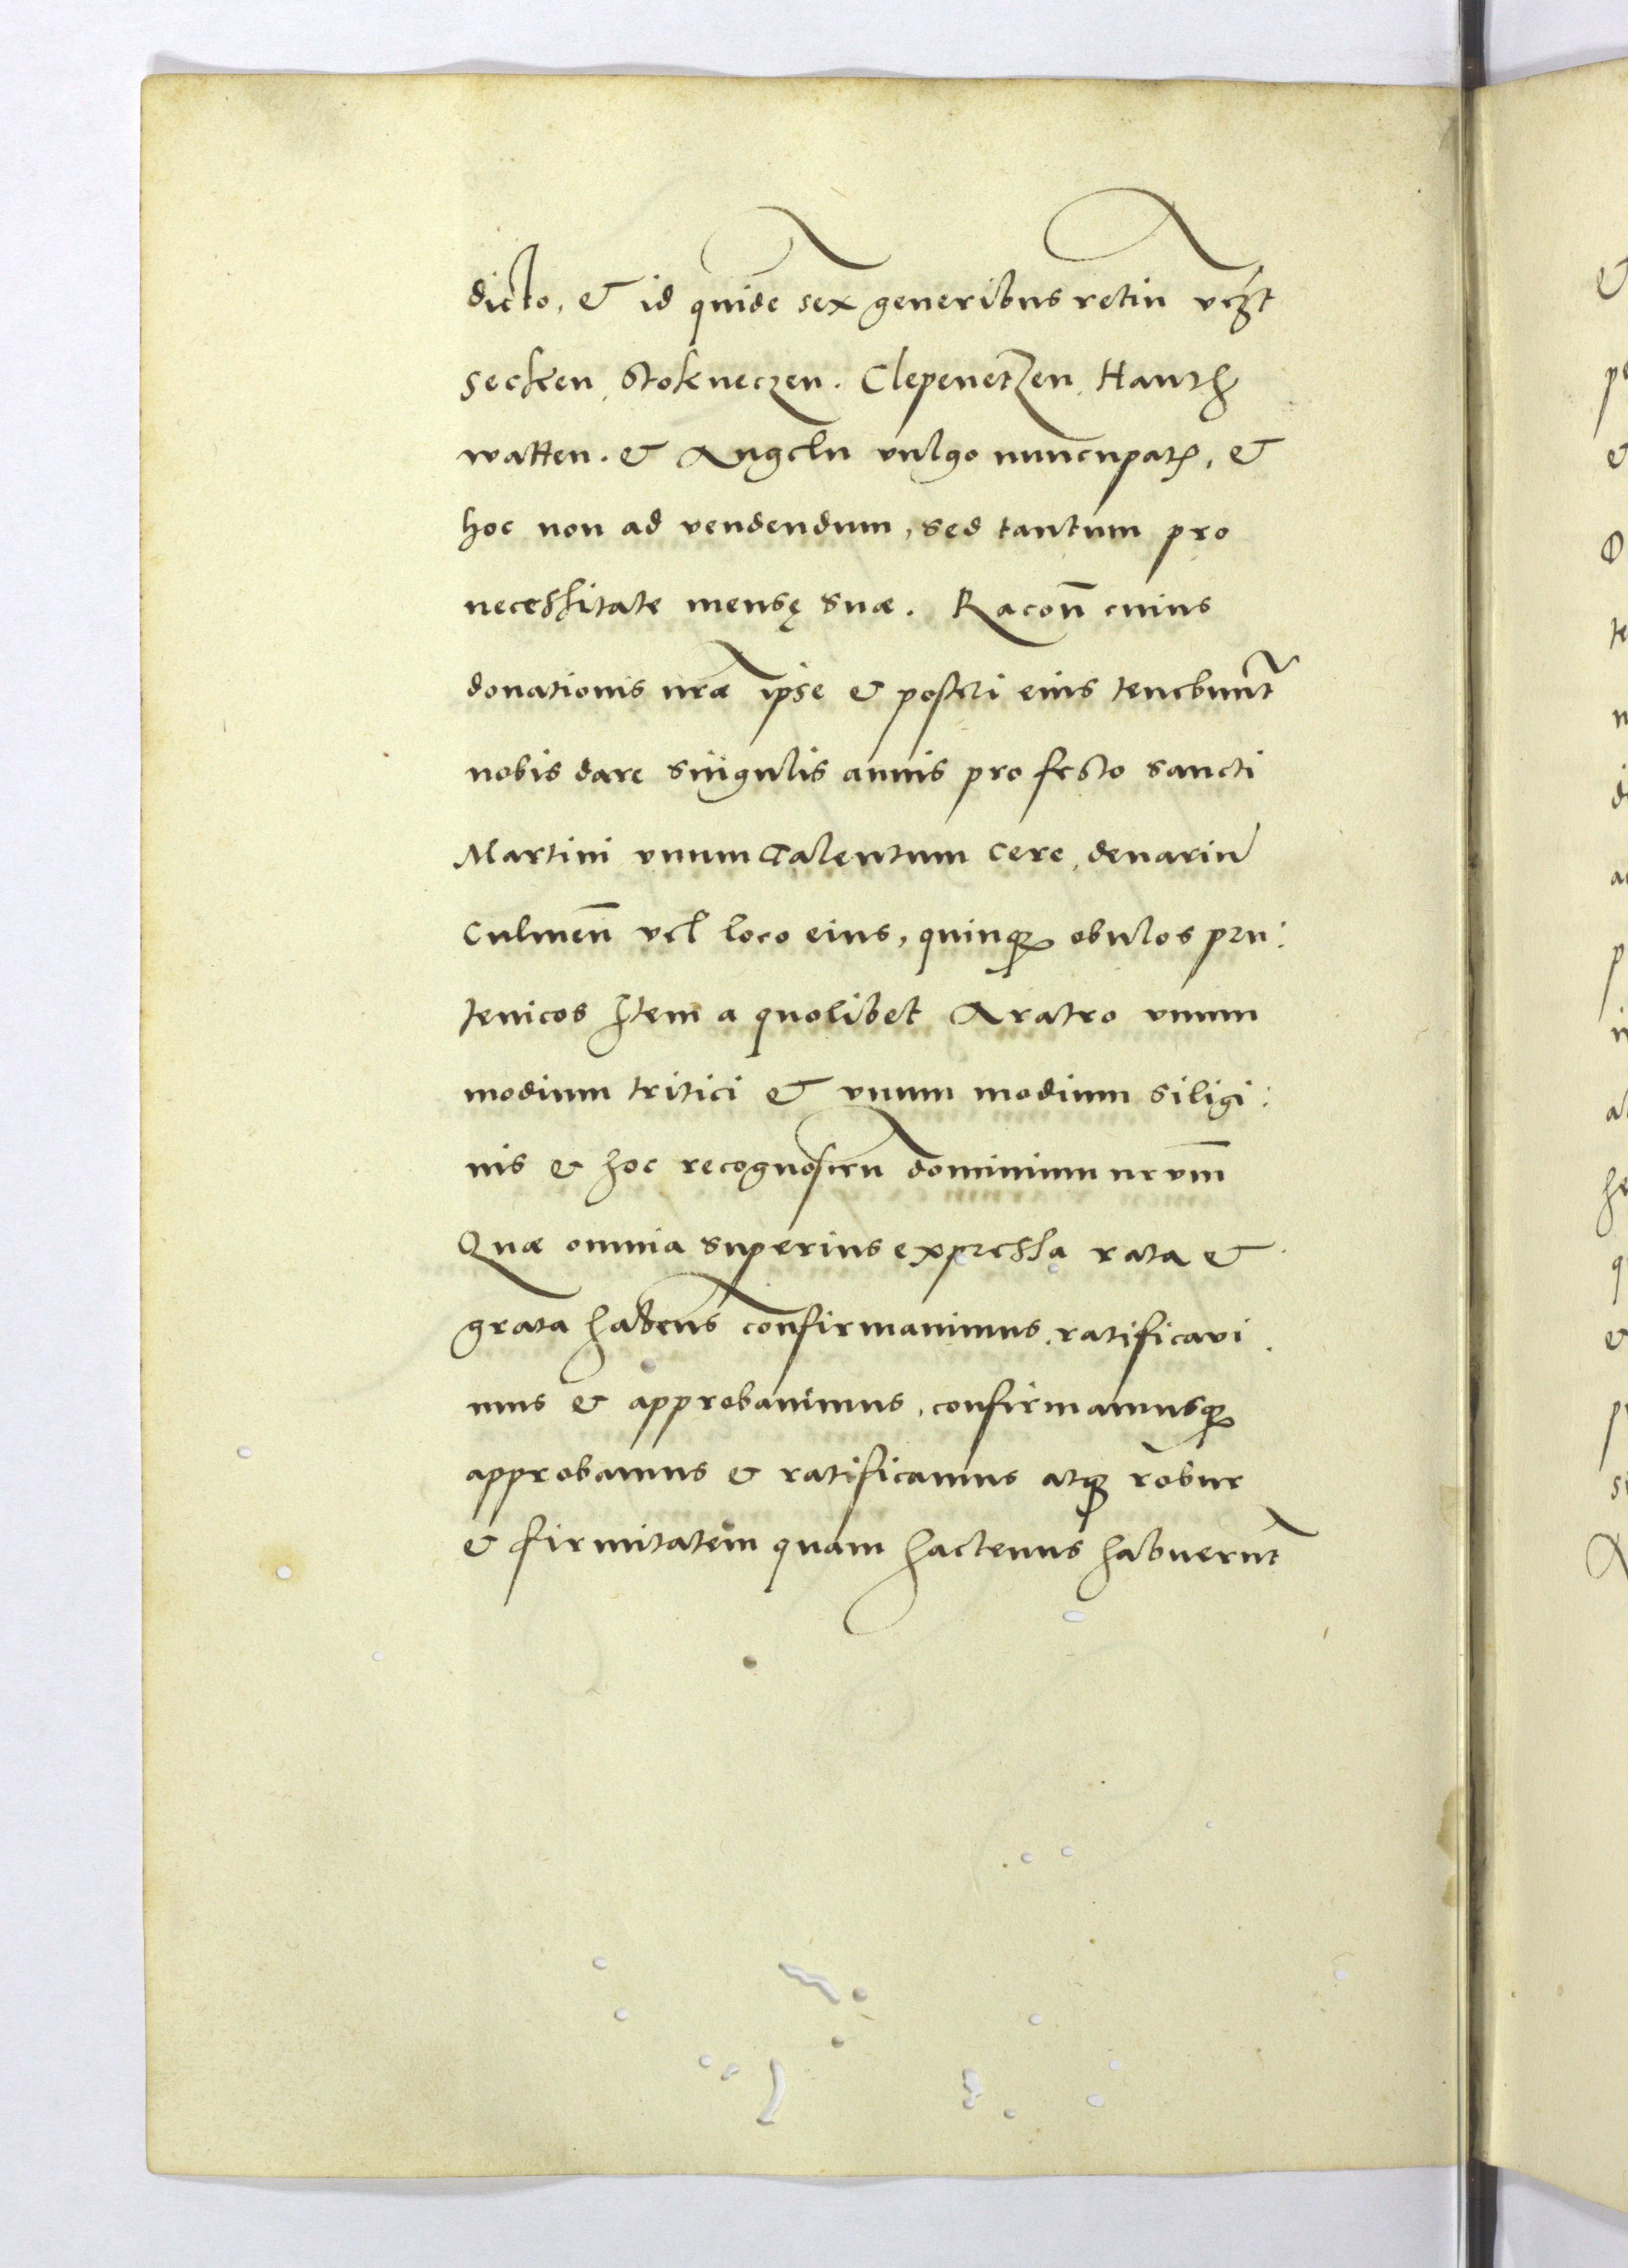 dicto, & id quidē sex generibus retiū vcꝫt
secken, Stokneczen. Clepenetzen, Hantz
watten. & Angeln vulgo nuncupatꝭ, &
hoc non ad vendendum, sed tantum pro
necessitate mensę suæ. Racoñ cuius
donationis nr̄æ ipse & posteri eius tenebunt᷑
nobis dare singulis annis pro festo sancti
Martini vnum Talentum cere, denariū
Culmeñ vel loco eius, quinqꝫ obulos pru:
tenicos Item a quolibet Aratro vnum
modium tritici & vnum modium siligi:
nis & hoc recognoscen̄ dominium nr̄vm
Quæ omnia superius expressa rata &
grata habens̄ confirmauimus, ratificavi
mus & approbauimus, confirmamusqꝫ
approbamus & ratificamus atqꝫ robur
& firmitatem quam hactenus habuerūt